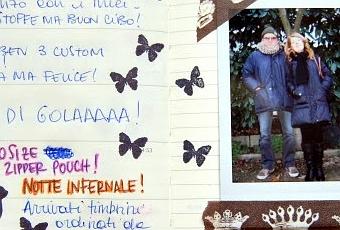 STOFFE MA BUON CIBO!
3 CUSTOM
A MA FELICE!
DI GOLAAAAA!
OSIZE
ZIPPER POUCH!
NOTTE INFERNALE!
Arrivati
ordinati da